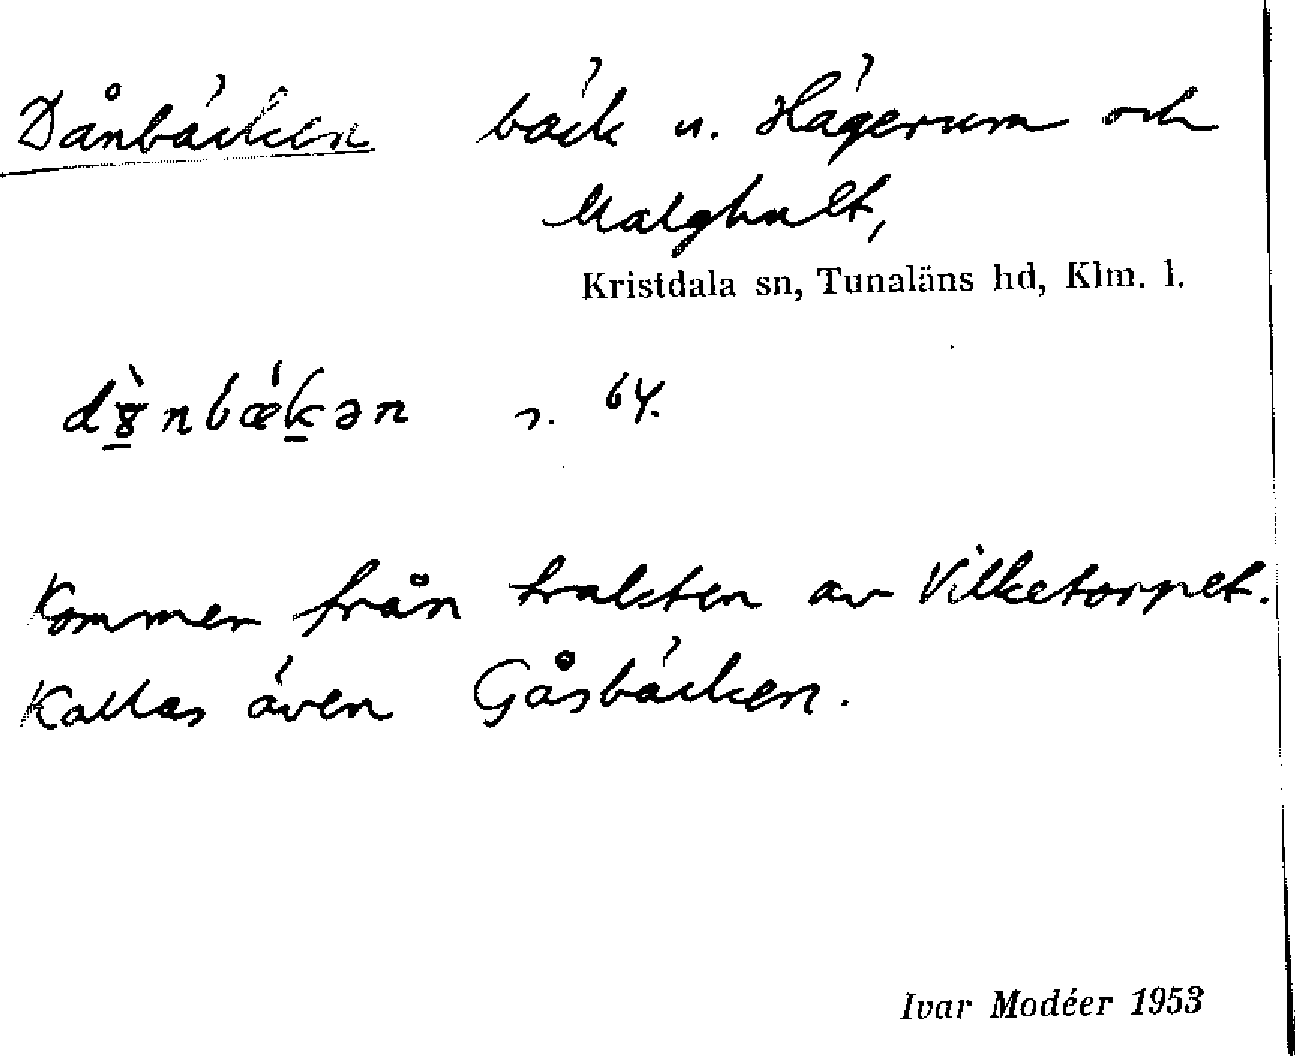 Dånbäcken bäck u. Hägerum och
Malghult,
Kristdala sn, Tunaläns hd, Klm. l.
64.
Kommer från trakten av Vilketorpet.
Kallas även Gåsbäcken.
Ivar Modéer 1953